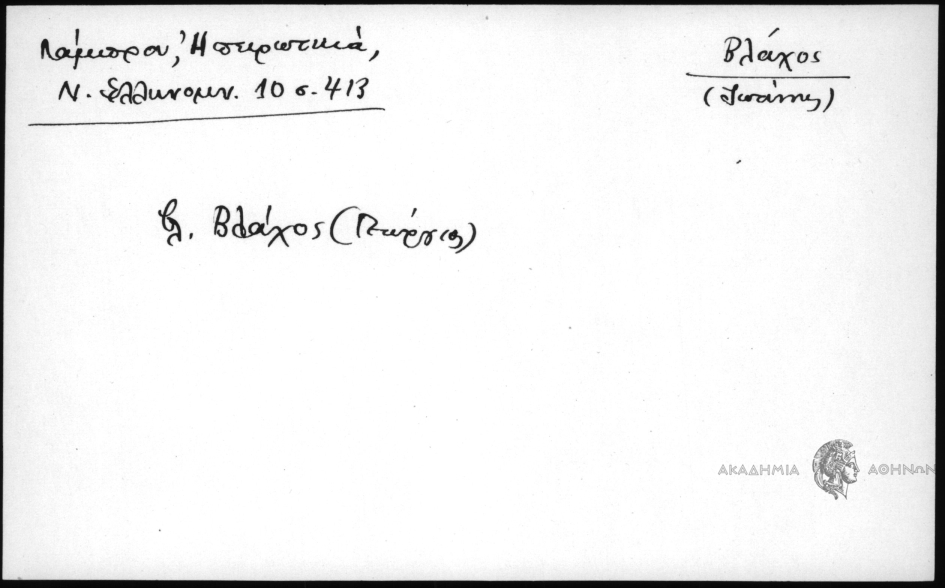 Λάμπρου, Ἠπειρωτικά,
Ν. Ἑλληνομν. 10 σ. 413
Βλάχος
(Ἰωάννης)
βλ. Βλάχος (Γεώργιος)
ΑΚΑΔΗΜΙΑ ΑΘΗΝΩΝ